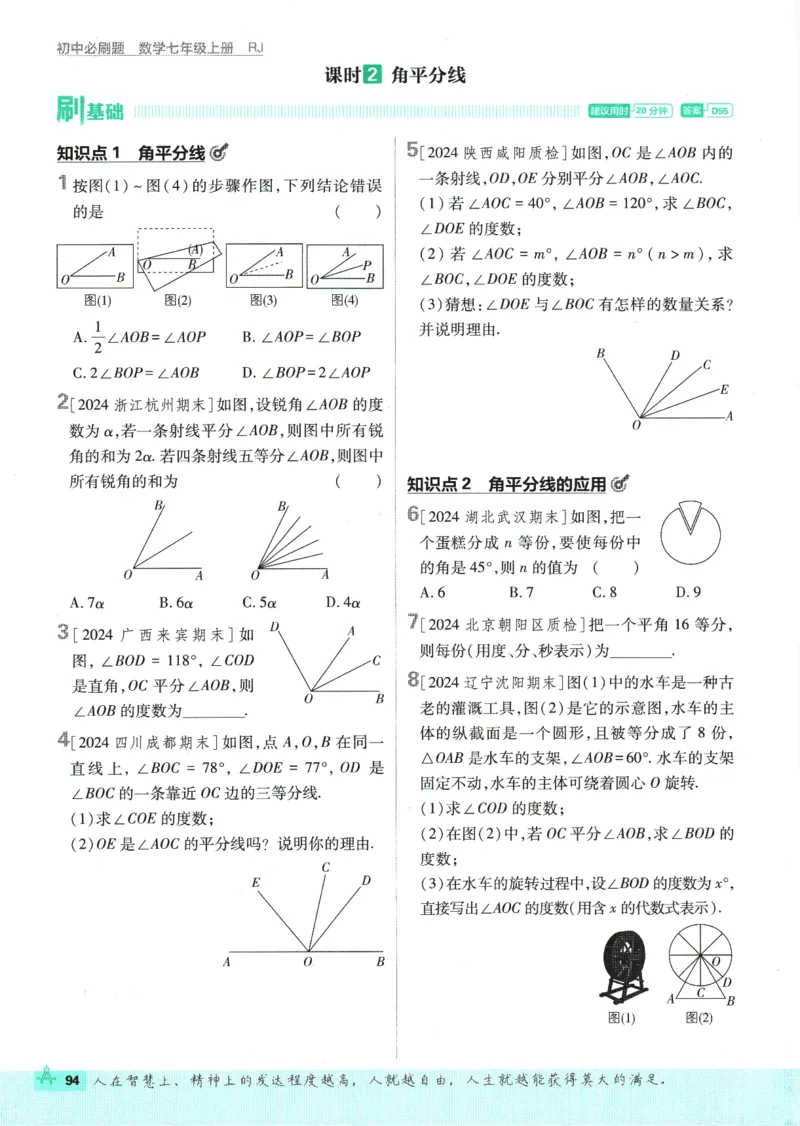 初中必刷题 数学七年级上册 RJ
课时2 角平分线
刷基础
建议用时 20分钟 答案 D55
知识点1 角平分线
1 按图(1)~图(4)的步骤作图,下列结论错误
的是 ( )
A B O
(A) O B
A B O
A P B O
图(1) 图(2) 图(3) 图(4)
A. 1/2∠AOB=∠AOP B. ∠AOP=∠BOP
C. 2∠BOP=∠AOB D. ∠BOP=2∠AOP
2 [2024 浙江杭州期末]如图,设锐角∠AOB 的度
数为 α,若一条射线平分∠AOB,则图中所有锐
角的和为 2α. 若四条射线五等分∠AOB,则图中
所有锐角的和为 ( )
B O A
B O A
A. 7α B. 6α C. 5α D. 4α
3 [2024 广西来宾期末]如
图, ∠BOD = 118°, ∠COD
是直角,OC 平分∠AOB,则
∠AOB 的度数为________.
D A C O B
4 [2024 四川成都期末]如图,点 A,O,B 在同一
直线上, ∠BOC = 78°, ∠DOE = 77°, OD 是
∠BOC 的一条靠近 OC 边的三等分线.
(1)求∠COE 的度数;
(2)OE 是∠AOC 的平分线吗? 说明你的理由.
C E D
A O B
5 [2024 陕西咸阳质检]如图,OC 是∠AOB 内的
一条射线,OD,OE 分别平分∠AOB,∠AOC.
(1) 若 ∠AOC = 40°, ∠AOB = 120°, 求 ∠BOC,
∠DOE 的度数;
(2) 若 ∠AOC = m°, ∠AOB = n° ( n > m ), 求
∠BOC,∠DOE 的度数;
(3)猜想:∠DOE 与∠BOC 有怎样的数量关系?
并说明理由.
B D C
E
A
O
知识点2 角平分线的应用
6 [2024 湖北武汉期末]如图,把一
个蛋糕分成 n 等份,要使每份中
的角是 45°,则 n 的值为 ( )
A. 6 B. 7 C. 8 D. 9
7 [2024 北京朝阳区质检]把一个平角 16 等分,
则每份(用度、分、秒表示)为________.
8 [2024 辽宁沈阳期末]图(1)中的水车是一种古
老的灌溉工具,图(2)是它的示意图,水车的主
体的纵截面是一个圆形,且被等分成了 8 份,
△OAB 是水车的支架,∠AOB=60°. 水车的支架
固定不动,水车的主体可绕着圆心 O 旋转.
(1)求∠COD 的度数;
(2)在图(2)中,若 OC 平分∠AOB,求∠BOD 的
度数;
(3)在水车的旋转过程中,设∠BOD 的度数为 x°,
直接写出∠AOC 的度数(用含 x 的代数式表示).
O
D
A C B
图(1) 图(2)
94 人在智慧上、精神上的发达程度越高,人就越自由,人生就越能获得莫大的满足.